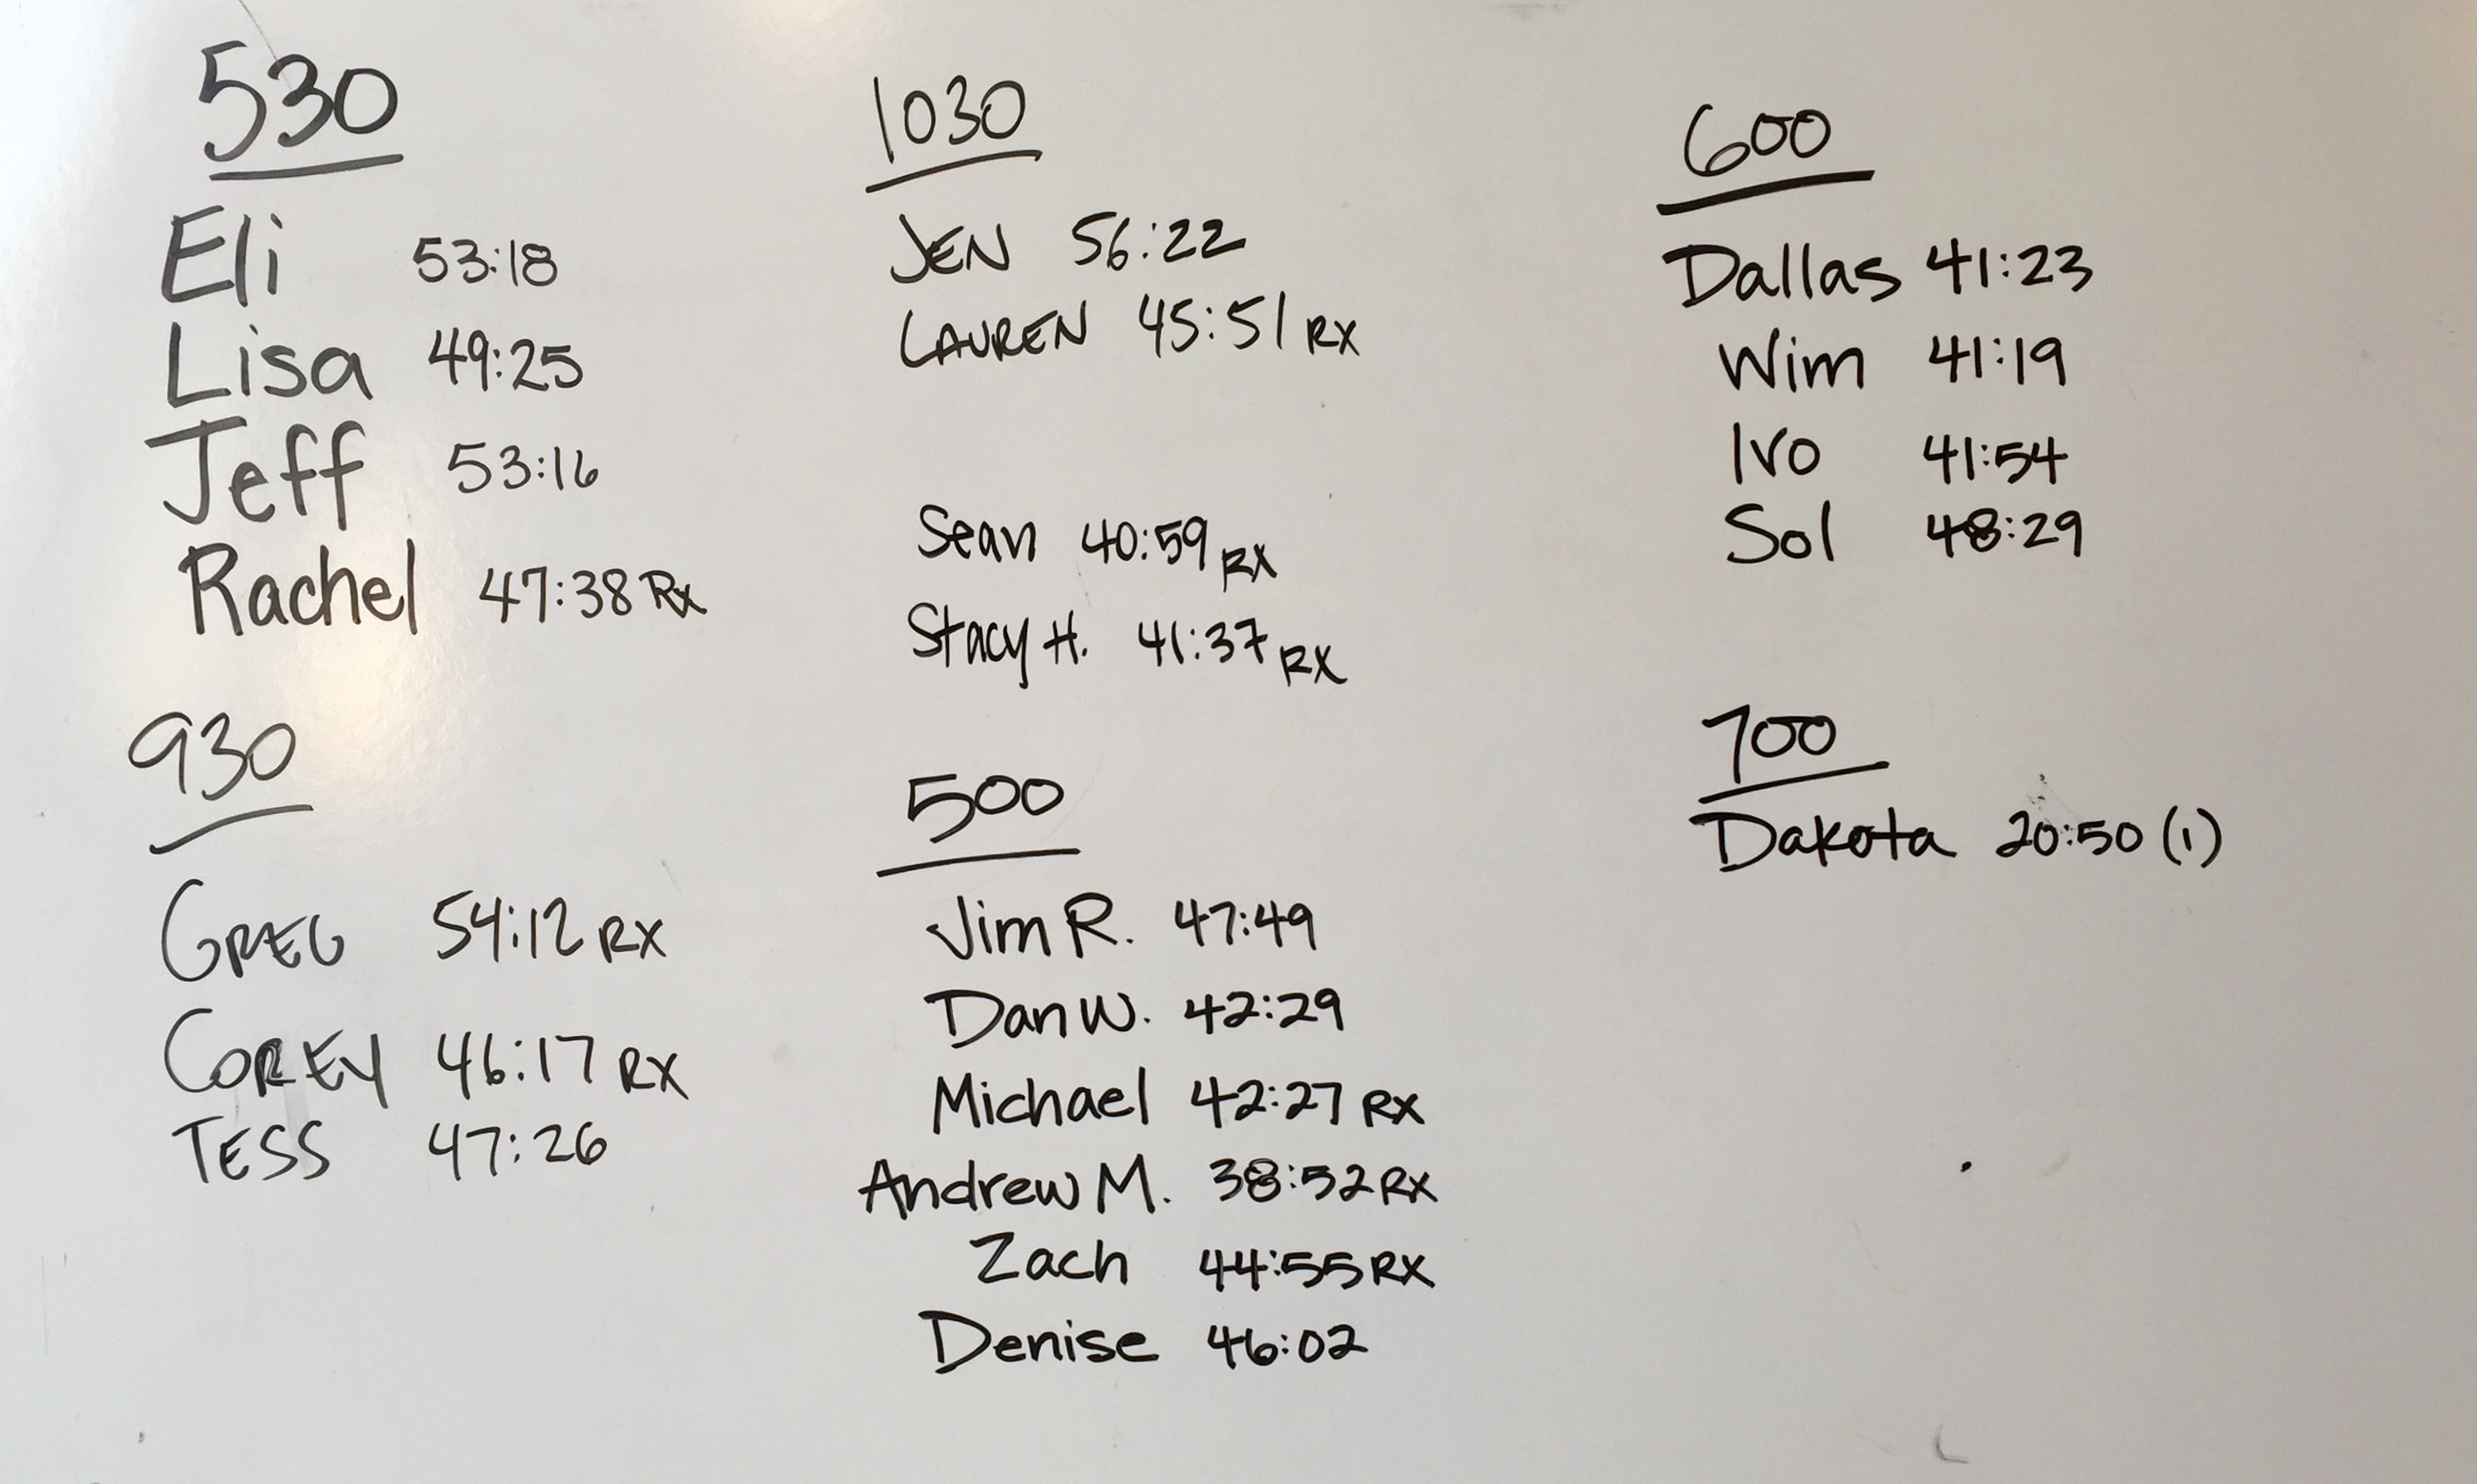 530
Eli 53:18
Lisa 49:25
Jeff 53:16
Rachel 47:38 Rx
930
GREG 54:12 RX
COREY 46:17 RX
TESS 47:26
1030
JEN 56:22
LAUREN 45:51 RX
Sean 40:59 RX
Stacy H. 41:37 RX
500
Jim R. 47:49
Dan W. 42:29
Michael 42:27 RX
Andrew M. 38:52 RX
Zach 44:55 RX
Denise 46:02
600
Dallas 41:23
Wim 41:19
Ivo 41:54
Sol 48:29
700
Dakota 20:50 (1)